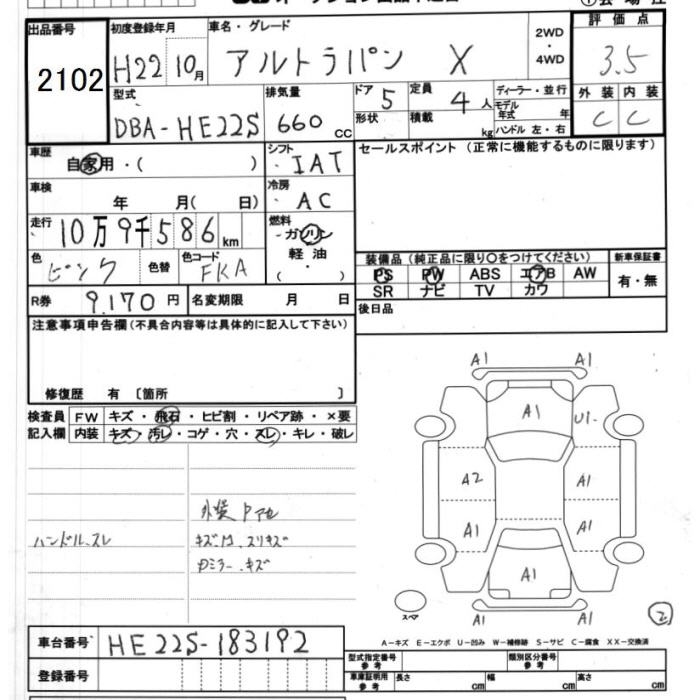 出品番号 初度登録年月 車名・グレード 2WD ・ 4WD 評価点
2102 H22 10月 アルトラパン X 3.5
型式 排気量 ドア 5 定員 4人 ディーラー・並行 外装 内装
DBA-HE22S 660cc 形状 積載 kg モデル年式 年 C C
ハンドル 左・右
車歴 自家用・( ) シフト IAT セールスポイント (正常に機能するものに限ります)
車検 年 月( 日) 冷房 AC
走行 10万9千586km 燃料 ガソリン
軽油
・( )
色 ピンク 色替 色コード FKA
装備品 (純正品に限り○をつけてください) 新車保証書
PS PW ABS エアB AW 有・無
SR ナビ TV カワ
R券 9,170円 名変期限 月 日 後日品
注意事項申告欄 (不具合内容等は具体的に記入して下さい)
修復歴 有 〔箇所 〕
検査員 FW キズ・飛石・ヒビ割・リペア跡・×要
記入欄 内装 キズ・汚レ・コゲ・穴・スレ・キレ・破レ
外装
ハンドル、スレ キズ・凹、スリキズ
ミラー、キズ
A1 A1
A1 U1
A2 A1
A1 A1
A1
A1 A1
スペア
2
A-キズ E-エクボ U-凹み W-補修跡 S-サビ C-腐食 XX-交換済
車台番号 HE22S-183192
型式指定番号 参考 類別区分番号 参考
登録番号 車庫証明用 参考 長さ cm 幅 cm 高さ cm